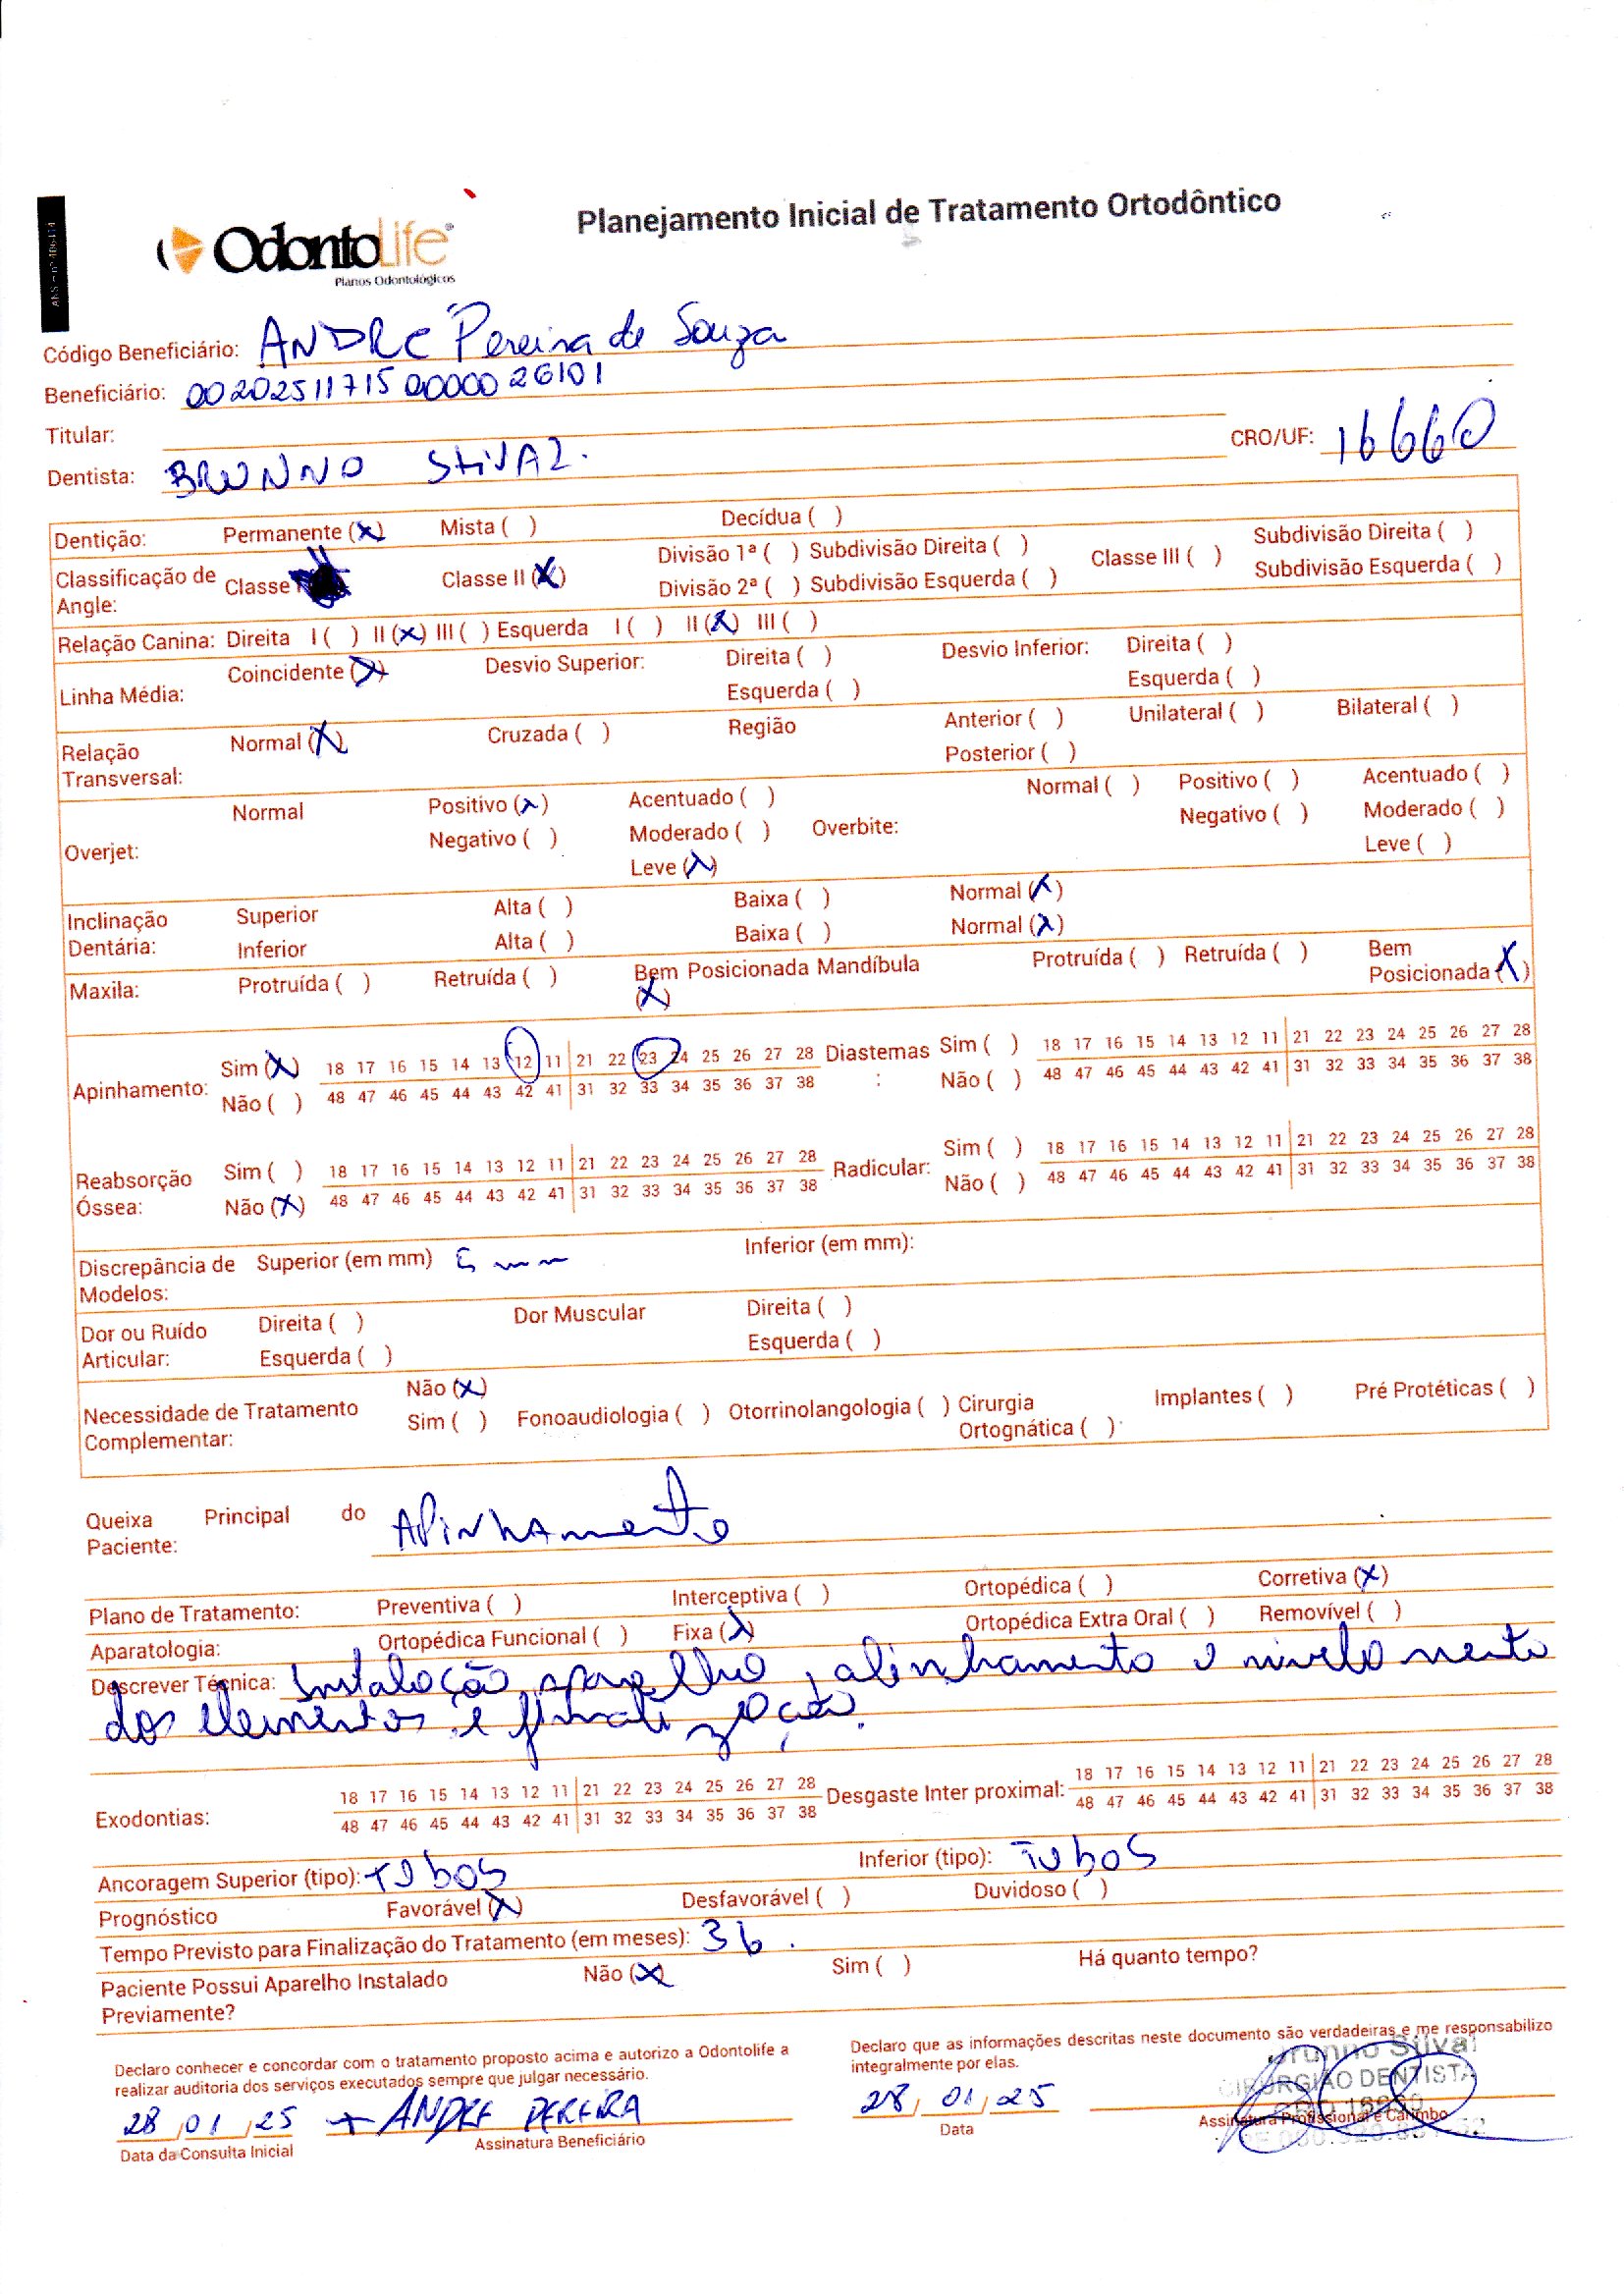 ANS - nº 406414
OdontoLife®
Planos Odontológicos
Planejamento Inicial de Tratamento Ortodôntico
Código Beneficiário: ANDRE Pereira de Souza
Beneficiário: 002025117150000026101
Titular:
CRO/UF: 16660
Dentista: BRUNNO StiVAL.
Dentição: Permanente (x) Mista ( ) Decídua ( )
Classificação de Angle: Classe Classe II (x) Divisão 1ª ( ) Subdivisão Direita ( ) Divisão 2ª ( ) Subdivisão Esquerda ( ) Classe III ( ) Subdivisão Direita ( ) Subdivisão Esquerda ( )
Relação Canina: Direita I ( ) II (x) III ( ) Esquerda I ( ) II (x) III ( )
Linha Média: Coincidente (x) Desvio Superior: Direita ( ) Esquerda ( ) Desvio Inferior: Direita ( ) Esquerda ( )
Relação Transversal: Normal (x) Cruzada ( ) Região Anterior ( ) Posterior ( ) Unilateral ( ) Bilateral ( )
Overjet: Normal Positivo (x) Negativo ( ) Acentuado ( ) Moderado ( ) Leve (x) Overbite: Normal ( ) Positivo ( ) Negativo ( ) Acentuado ( ) Moderado ( ) Leve ( )
Inclinação Dentária: Superior Alta ( ) Baixa ( ) Normal (x)
Inferior Alta ( ) Baixa ( ) Normal (x)
Maxila: Protruída ( ) Retruída ( ) Bem Posicionada (x) Mandíbula Protruída ( ) Retruída ( ) Bem Posicionada (x)
Apinhamento: Sim (x) 18 17 16 15 14 13 12 11 21 22 23 24 25 26 27 28 Diastemas : Sim ( ) 18 17 16 15 14 13 12 11 21 22 23 24 25 26 27 28
Não ( ) 48 47 46 45 44 43 42 41 31 32 33 34 35 36 37 38 Não ( ) 48 47 46 45 44 43 42 41 31 32 33 34 35 36 37 38
Reabsorção Óssea: Sim ( ) 18 17 16 15 14 13 12 11 21 22 23 24 25 26 27 28 Radicular: Sim ( ) 18 17 16 15 14 13 12 11 21 22 23 24 25 26 27 28
Não (x) 48 47 46 45 44 43 42 41 31 32 33 34 35 36 37 38 Não ( ) 48 47 46 45 44 43 42 41 31 32 33 34 35 36 37 38
Discrepância de Modelos: Superior (em mm) 5 mm Inferior (em mm):
Dor ou Ruído Articular: Direita ( ) Esquerda ( ) Dor Muscular Direita ( ) Esquerda ( )
Necessidade de Tratamento Complementar: Não (x) Sim ( ) Fonoaudiologia ( ) Otorrinolangologia ( ) Cirurgia Ortognática ( ) Implantes ( ) Pré Protéticas ( )
Queixa Principal do Paciente: APinhAmento
Plano de Tratamento: Preventiva ( ) Interceptiva ( ) Ortopédica ( ) Corretiva (x)
Aparatologia: Ortopédica Funcional ( ) Fixa (x) Ortopédica Extra Oral ( ) Removível ( )
Descrever Técnica: Instalação aparelho, alinhamento e nivelamento
dos elementos e finalização.
Exodontias: 18 17 16 15 14 13 12 11 21 22 23 24 25 26 27 28 Desgaste Inter proximal: 18 17 16 15 14 13 12 11 21 22 23 24 25 26 27 28
48 47 46 45 44 43 42 41 31 32 33 34 35 36 37 38 48 47 46 45 44 43 42 41 31 32 33 34 35 36 37 38
Ancoragem Superior (tipo): Tubos Inferior (tipo): Tubos
Prognóstico Favorável (x) Desfavorável ( ) Duvidoso ( )
Tempo Previsto para Finalização do Tratamento (em meses): 36.
Paciente Possui Aparelho Instalado Previamente? Não (x) Sim ( ) Há quanto tempo?
Declaro conhecer e concordar com o tratamento proposto acima e autorizo a Odontolife a
realizar auditoria dos serviços executados sempre que julgar necessário.
28/01/25 + ANDRE PEREIRA
Data da Consulta Inicial Assinatura Beneficiário
Declaro que as informações descritas neste documento são verdadeiras e me responsabilizo
integralmente por elas.
28/01/25
Data Assinatura Profissional e Carimbo
Brunno Stival
CIRURGIÃO DENTISTA